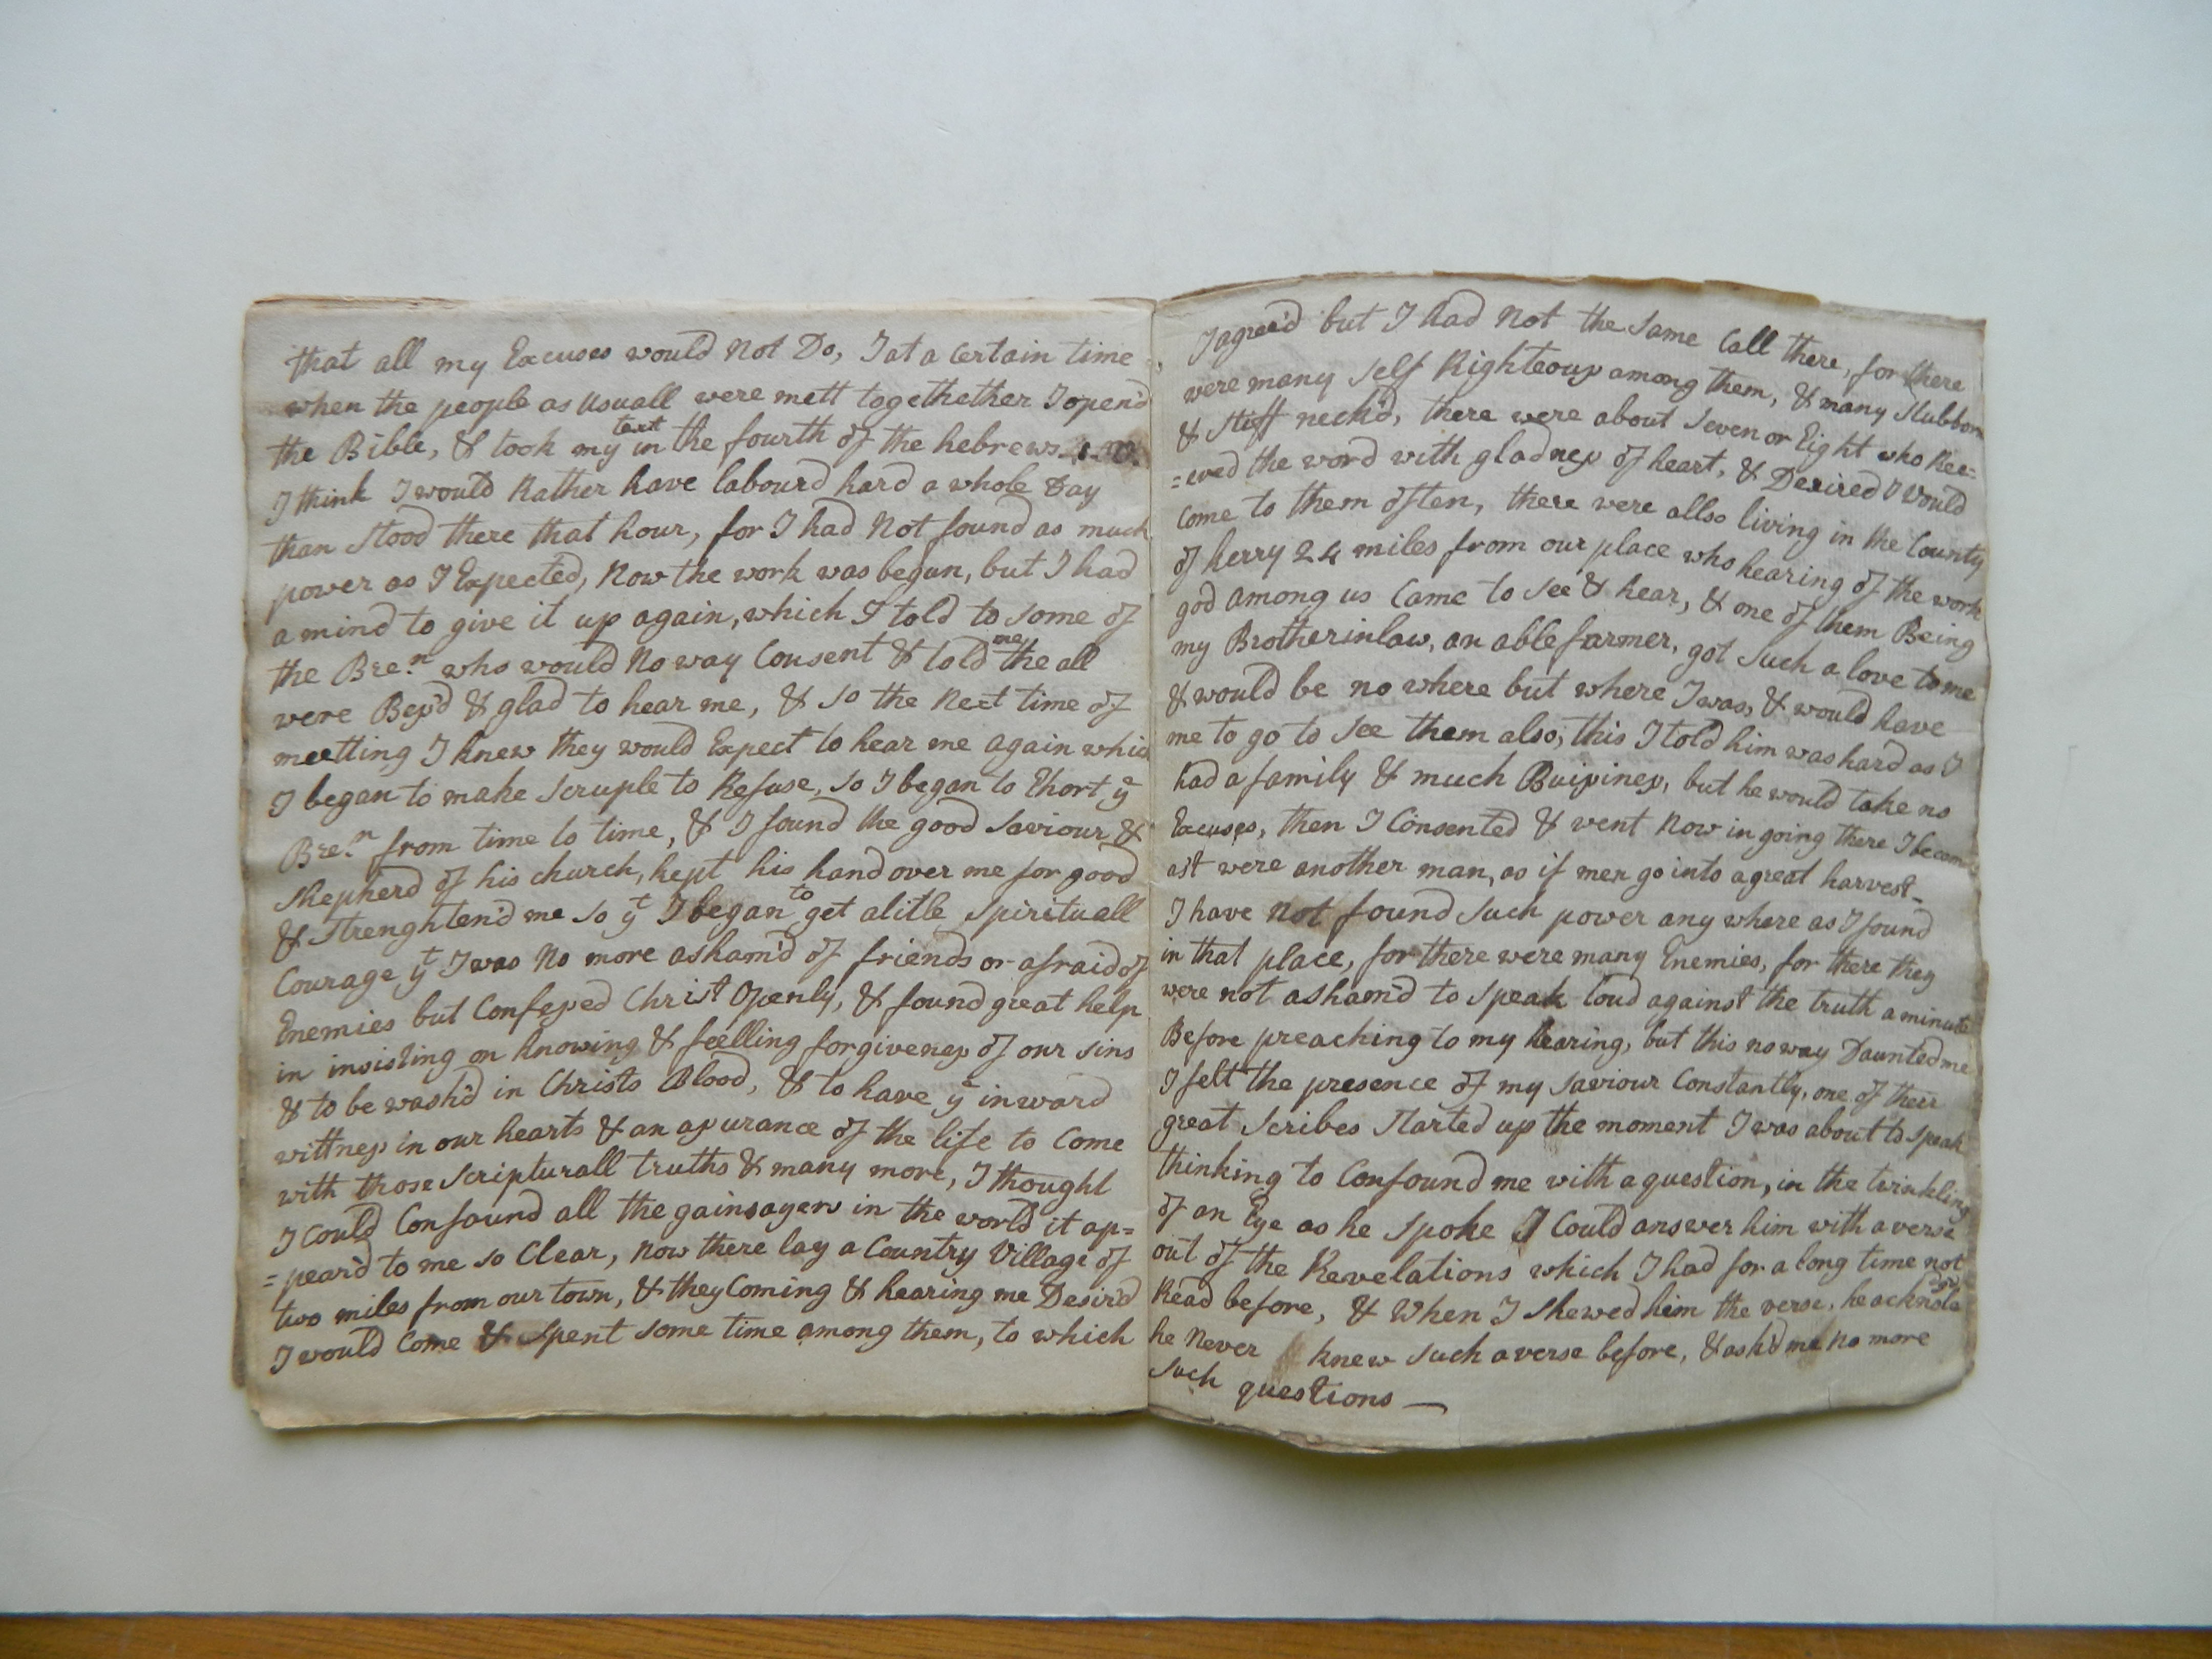 that all my Excuses would Not Do, I at a Certain time
when the people as Usuall were mett togethether I open'd
the Bible, & took my text in the fourth of the hebrews 1. v.
I think I would Rather have labourd hard a whole Day
than Stood there that hour, for I had Not found as much
power as I Expected, Now the work was begun, but I had
a mind to give it up again, which I told to some of
the Bre.n who would No way Consent & told me the all
were Bless'd & glad to hear me, & so the Next time of
meetting I knew they would Expect to hear me again whic
I began to make Scruple to Refuse, so I began to Ehort ye
Bre.n from time to time, & I found the good Saviour &
Shepherd of his church, kept his hand over me for good
& Strenghten'd me so yt I began to get a litle Spirituall
Courage yt I was No more asham'd of friends or afraid of
Enemies but Confessed Christ Openly, & found great help
in insisting on knowing & feelling forgiveness of our sins
& to be wash'd in Christs Blood, & to have ye inward
wittness in our hearts & an assurance of the life to Come
with those Scripturall truths & many more, I thought
I Could Confound all the gainsayers in the world it ap=
=pear'd to me so Clear, Now there lay a Country Village of
two miles from our town, & they Coming & hearing me Desir'd
I would Come & Spent some time among them, to which
I agree'd but I had Not the Same Call there, for there
were many Self Righteous among them, & many Stubborn
& Stiff neck'd, there were about Seven or Eight who Rec=
=eved the word with gladness of heart, & Desired I would
Come to them often, there were allso living in the County
of kerry 24 miles from our place who hearing of the work
god among us Came to See & hear, & one of them Being
my Brotherinlaw, an able farmer, got Such a love to me
& would be no where but where I was, & would have
me to go to see them also, this I told him was hard as I
had a family & much Buissiness, but he would take no
Excuses, then I Consented & went Now in going there I becom
ast were another man, as if men go into a great harvest_
I have Not found Such power any where as I found
in that place, for there were many Enemies, for there they
were not asham'd to Speak loud against the truth a minute
Before preaching to my hearing, but this no way Daunted me
I felt the presence of my Saviour Constantly, one of their
great Scribes Started up the moment I was about to Speak
thinking to Confound me with a question, in the twinkling
of an Eye as he Spoke I Could answer him with a verse
out of the Revelations which I had for a long time not
Read before, & When I Shewed him the verse, he acknole
he Never knew Such a verse before, & ask'd me No more
Such questions —